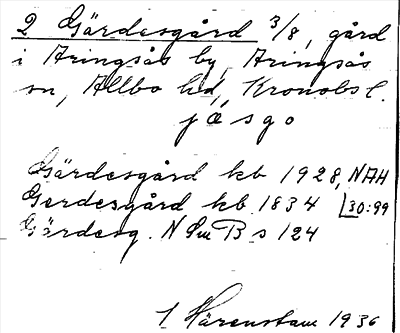 2 Gärdesgård 3/8, gård
i Aringsås by, Aringsås
sn, Allbo hd, Kronobs l.
jæsgo
Gärdesgård kb 1928, NAH
Gerdesgård kb 1834 [30:99
Gärdesg. N Sm B s 124
S Härenstam 1936